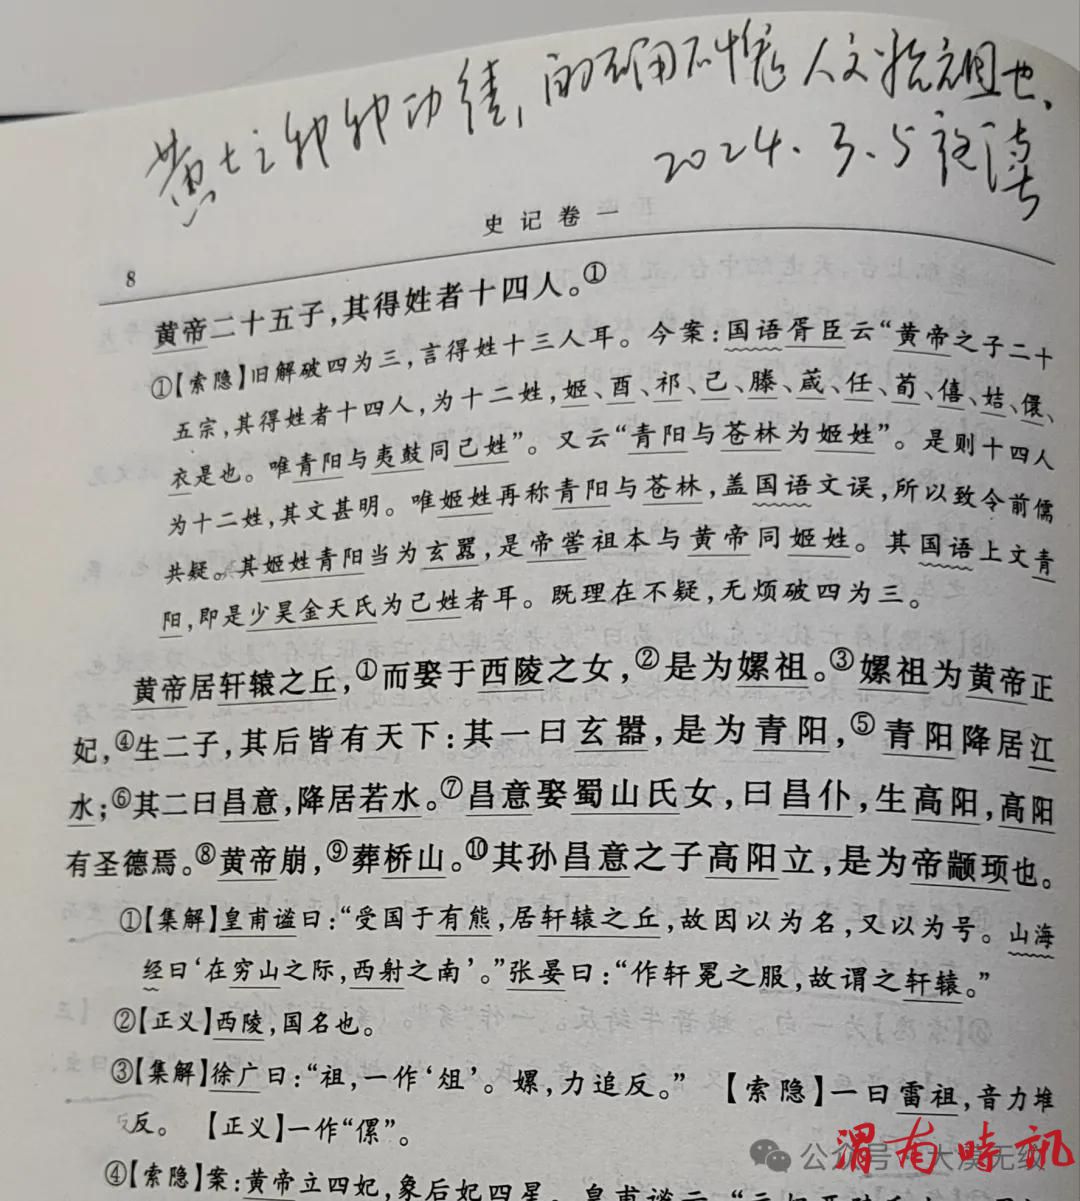 黄七之种种功绩，的确不愧人文始祖也、
2024.3.5夜读
史记卷一
8
黄帝二十五子，其得姓者十四人。①
①【索隐】旧解破四为三，言得姓十三人耳。今案：国语胥臣云“黄帝之子二十
五宗，其得姓者十四人，为十二姓，姬、酉、祁、己、滕、葴、任、荀、僖、姞、儇、
衣是也。唯青阳与夷鼓同己姓”。又云“青阳与苍林为姬姓”。是则十四人
为十二姓，其文甚明。唯姬姓再称青阳与苍林，盖国语文误，所以致令前儒
共疑。其姬姓青阳当为玄嚣，是帝喾祖本与黄帝同姬姓。其国语上文青
阳，即是少昊金天氏为己姓者耳。既理在不疑，无烦破四为三。
黄帝居轩辕之丘，①而娶于西陵之女，②是为嫘祖。③嫘祖为黄帝正
妃，④生二子，其后皆有天下：其一曰玄嚣，是为青阳，⑤青阳降居江
水；⑥其二曰昌意，降居若水。⑦昌意娶蜀山氏女，曰昌仆，生高阳，高阳
有圣德焉。⑧黄帝崩，⑨葬桥山。⑩其孙昌意之子高阳立，是为帝颛顼也。
①【集解】皇甫谧曰：“受国于有熊，居轩辕之丘，故因以为名，又以为号。山海
经曰‘在穷山之际，西射之南’。”张晏曰：“作轩冕之服，故谓之轩辕。”
②【正义】西陵，国名也。
③【集解】徐广曰：“祖，一作‘俎’。嫘，力追反。”　【索隐】一曰雷祖，音力堆
反。　【正义】一作“傫”。
④【索隐】案：黄帝立四妃，象后妃四星。皇甫谧云：“元妃西陵
公众号 大漠无纹
渭南时讯